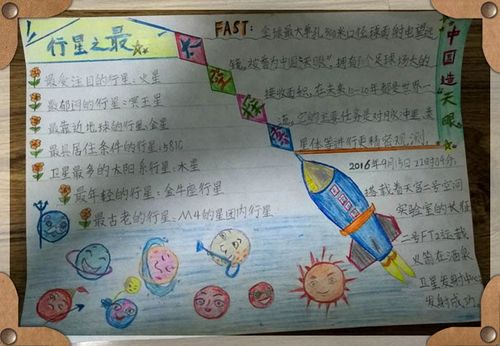 行星之最
最受注目的行星:火星
最郁闷的行星:冥王星
最靠近地球的行星:金星
最具居住条件的行星:581C
卫星最多的太阳系行星:木星
最年轻的行星:金牛座行星
最古老的行星:M4的星团内行星
FAST:全球最大单孔500米口径球面射电望远
镜,被誉为中国"天眼",拥有30个足球场大的
接收面积,在未来10-20年都是世界一
流,它的主要任务是对脉冲星、类
星体等进行更精密观测
中国造"天眼"
2016年9月15日22时04分,
搭载着天宫二号空间
实验室的长征
二号FT2运载
火箭在酒泉
卫星发射中心
发射成功